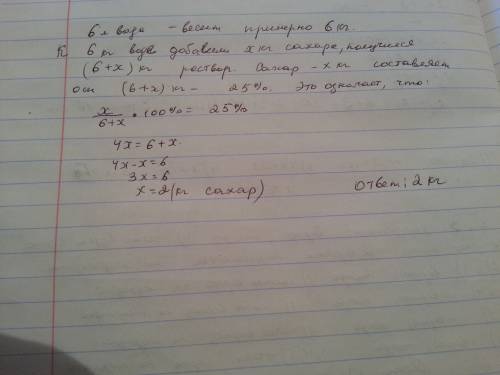 6 л воды - весит примерно 6 кг.
К 6 кг воды добавим x кг сахара, получился
(6+x) кг раствор. Сахар - x кг составляет
от (6+x) кг - 25%. Это означает, что:
x/(6+x) • 100% = 25%
4x = 6 + x.
4x - x = 6
3x = 6
x = 2 (кг сахар)
Ответ: 2 кг